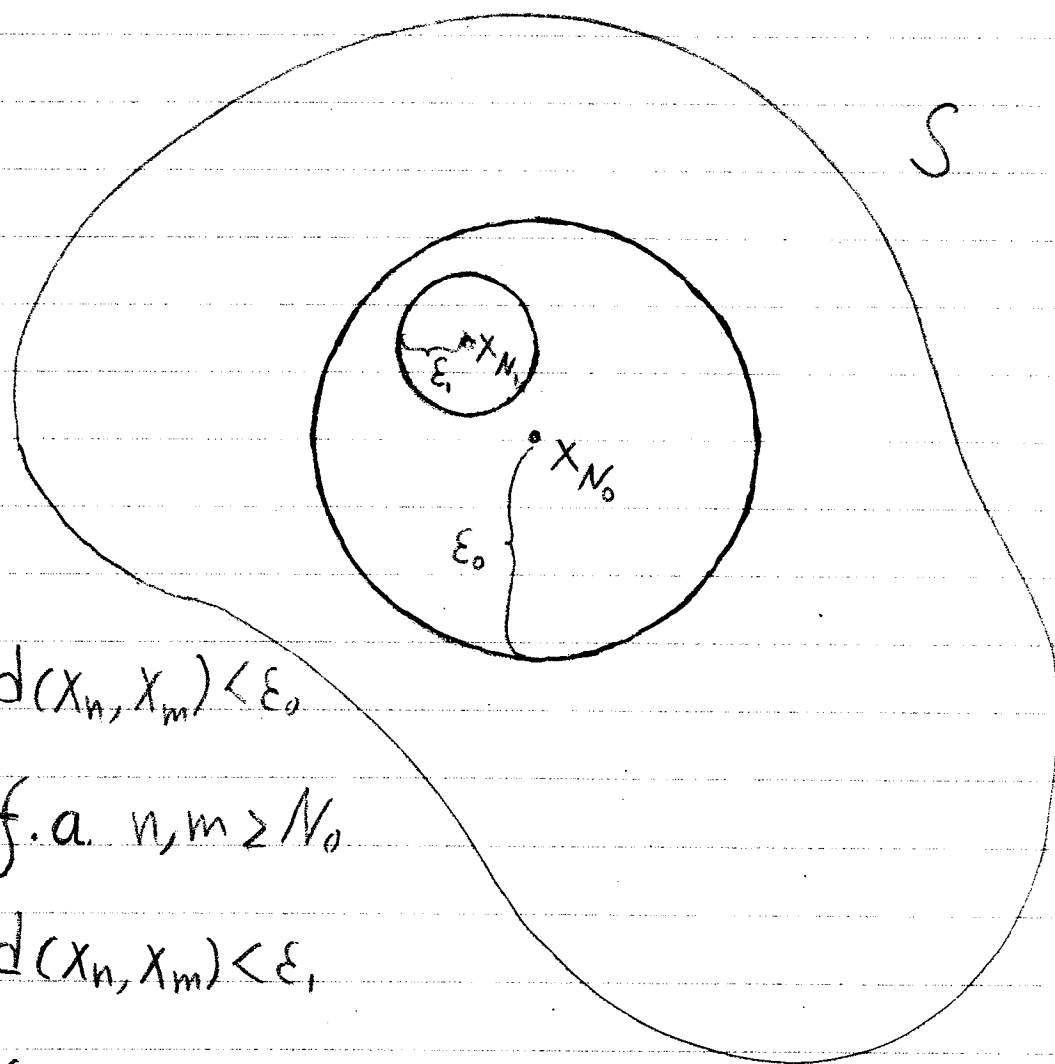 S
ε₁
x_{N₁}
x_{N₀}
ε₀
d(x_n, x_m) < ε₀
f.a. n,m ≥ N₀
d(x_n, x_m) < ε₁